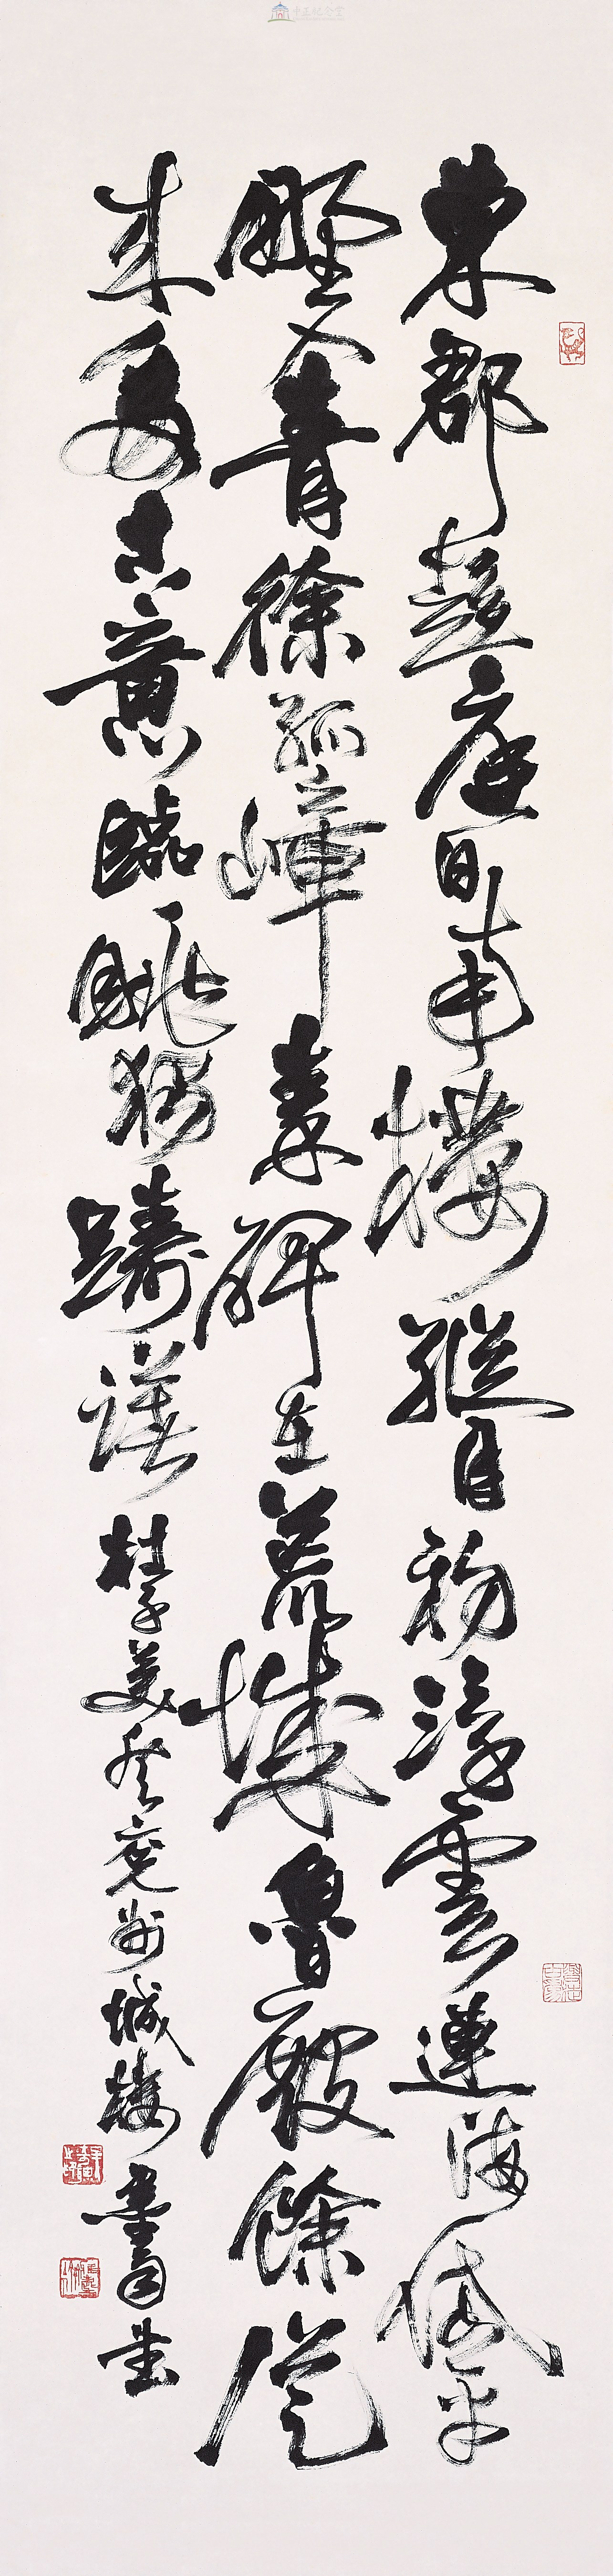 中正紀念堂
東郡趨庭日南樓縱目初浮雲連海岱平
野入青徐孤嶂秦碑在荒城魯殿餘從
來多古意臨眺獨躊躇 杜子美登兗州城樓 書